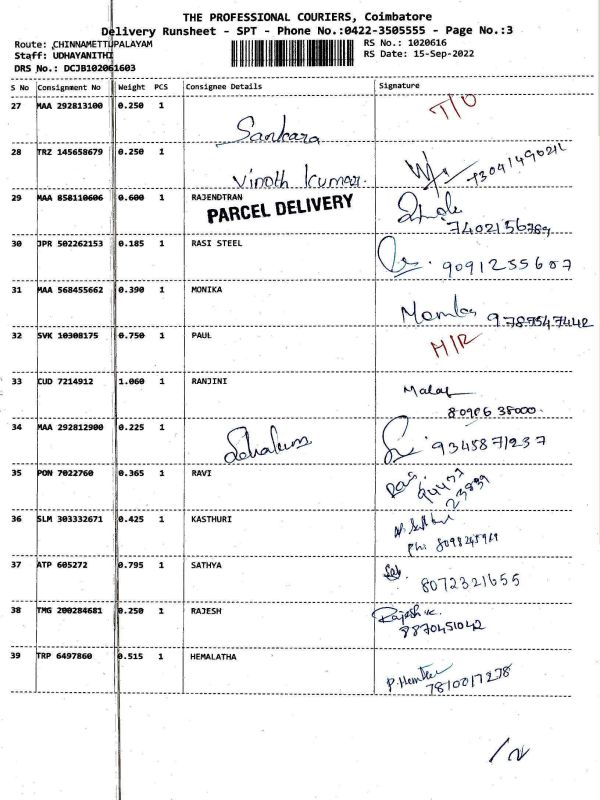 THE PROFESSIONAL COURIERS, Coimbatore
Delivery Runsheet - SPT - Phone No.:0422-3505555 - Page No.:3
Route: CHINNAMETTUPALAYAM RS No.: 1020616
Staff: UDHAYANITHI RS Date: 15-Sep-2022
DRS No.: DCJB102061603
S No Consignment No Weight PCS Consignee Details Signature
27 MAA 292813100 0.250 1 Sankara T/O
28 TRZ 145658679 0.250 1 Vinoth Kumar.
29 MAA 858110606 0.600 1 RAJENDTRAN
PARCEL DELIVERY
7402156789
30 JPR 502262153 0.185 1 RASI STEEL
9091255607
31 MAA 568455662 0.390 1 MONIKA
9787547442
32 SVK 10308175 0.750 1 PAUL M/R
33 CUD 7214912 1.060 1 RANJINI
34 MAA 292812900 0.225 1
9345871237
35 PON 7022760 0.365 1 RAVI
Ravi
94473
23839
36 SLM 303332671 0.425 1 KASTHURI
37 ATP 605272 0.795 1 SATHYA
8072321655
38 TMG 200284681 0.250 1 RAJESH
Rajesh
8870451042
39 TRP 6497860 0.515 1 HEMALATHA
7810017278